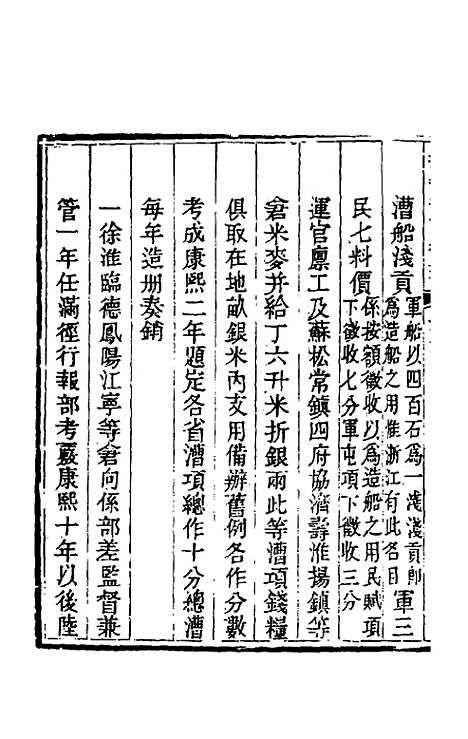 漕船淺貢軍船以四百石爲一淺淺貢卽爲造船之用惟浙江有此名目軍三
民七料價係按額徵收以爲造船之用民賦項下徵收七分軍屯項下徵收三分
運官廪工及蘇松常鎮四府協濟壽淮揚鎮等
倉米麥幷給丁六升米折銀兩此等漕項錢糧
俱取在地畝銀米內支用備辦舊例各作分數
考成康熙二年題定各省漕項總作十分總漕
每年造册奏銷
一徐淮臨德鳳陽江寧等倉向係部差監督兼
管一年任滿徑行報部考覈康熙十年以後陸